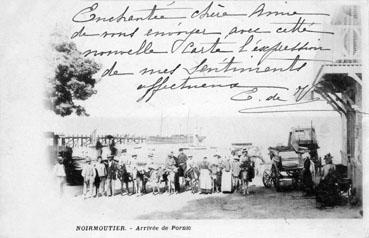 Enchantée chère Amie
de vous envoyer avec cette
nouvelle Carte l'expression
de mes Sentiments
affectueux
E. de
NOIRMOUTIER. - Arrivée de Pornic